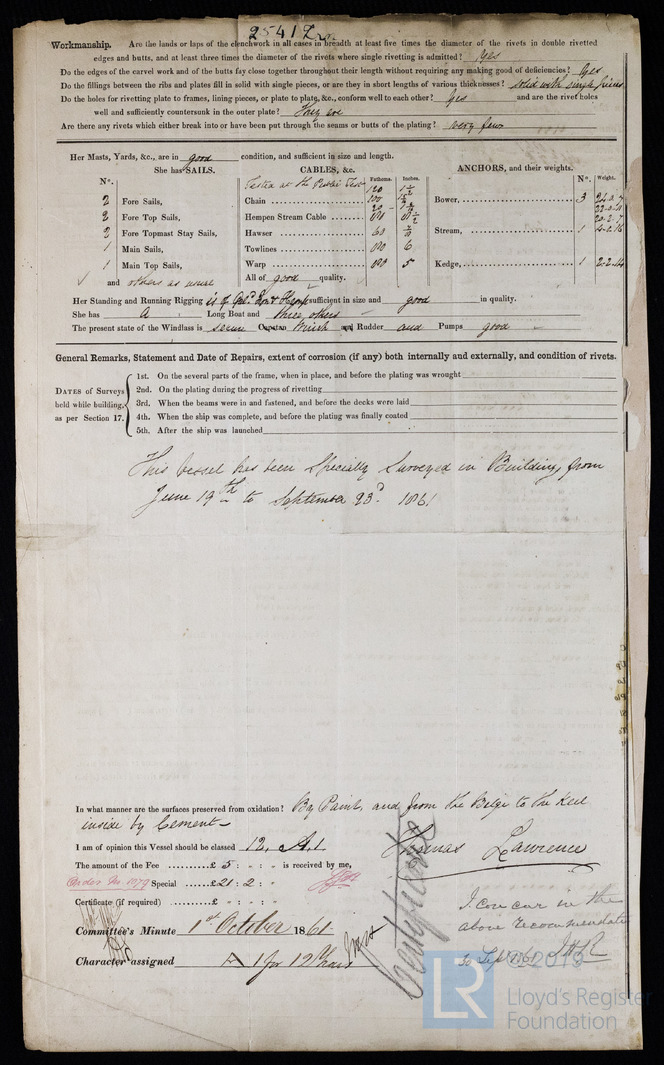 25412
Workmanship. Are the lands or laps of the clenchwork in all cases in breadth at least five times the diameter of the rivets in double rivetted
edges and butts, and at least three times the diameter of the rivets where single rivetting is admitted? Yes
Do the edges of the carvel work and of the butts fay close together throughout their length without requiring any making good of deficiencies? Yes
Do the fillings between the ribs and plates fill in solid with single pieces, or are they in short lengths of various thicknesses? Solid with single pieces
Do the holes for rivetting plate to frames, lining pieces, or plate to plate, &c., conform well to each other? Yes and are the rivet holes
well and sufficiently countersunk in the outer plate? They are
Are there any rivets which either break into or have been put through the seams or butts of the plating? very few
Her Masts, Yards, &c., are in good condition, and sufficient in size and length.
She has SAILS. CABLES, &c. Fathoms. Inches. ANCHORS, and their weights.
N°. Tested at the Public Test N°. Weight.
2 Fore Sails, Chain 120 100 20 Bower, 3
2 Fore Top Sails, Hempen Stream Cable
2 Fore Topmast Stay Sails, Hawser 60 Stream, 1
1 Main Sails, Towlines 6
1 Main Top Sails, Warp 5 Kedge, 1
and others as usual All of good quality.
Her Standing and Running Rigging is of Gal. Iron & Hemp sufficient in size and good in quality.
She has A Long Boat and three others
The present state of the Windlass is secure Capstan Winch and Rudder and Pumps good
General Remarks, Statement and Date of Repairs, extent of corrosion (if any) both internally and externally, and condition of rivets.
DATES of Surveys held while building, as per Section 17.
1st. On the several parts of the frame, when in place, and before the plating was wrought
2nd. On the plating during the progress of rivetting
3rd. When the beams were in and fastened, and before the decks were laid
4th. When the ship was complete, and before the plating was finally coated
5th. After the ship was launched
This vessel has been Specially Surveyed in Building from
June 19th to September 23d 1861
In what manner are the surfaces preserved from oxidation? By Paint, and from the Bilge to the Keel
inside by Cement
I am of opinion this Vessel should be classed 12, A.1 Thomas Lawrence
The amount of the Fee £ 5 : - : - is received by me,
Special £ 21 : 2 : -
Certificate (if required) £ - : - : - I concur in the
above recommendation
Committee's Minute 1st October 1861
30 Sept 1861
Character assigned A 1 for 12 Years
LR
Lloyd's Register
Foundation